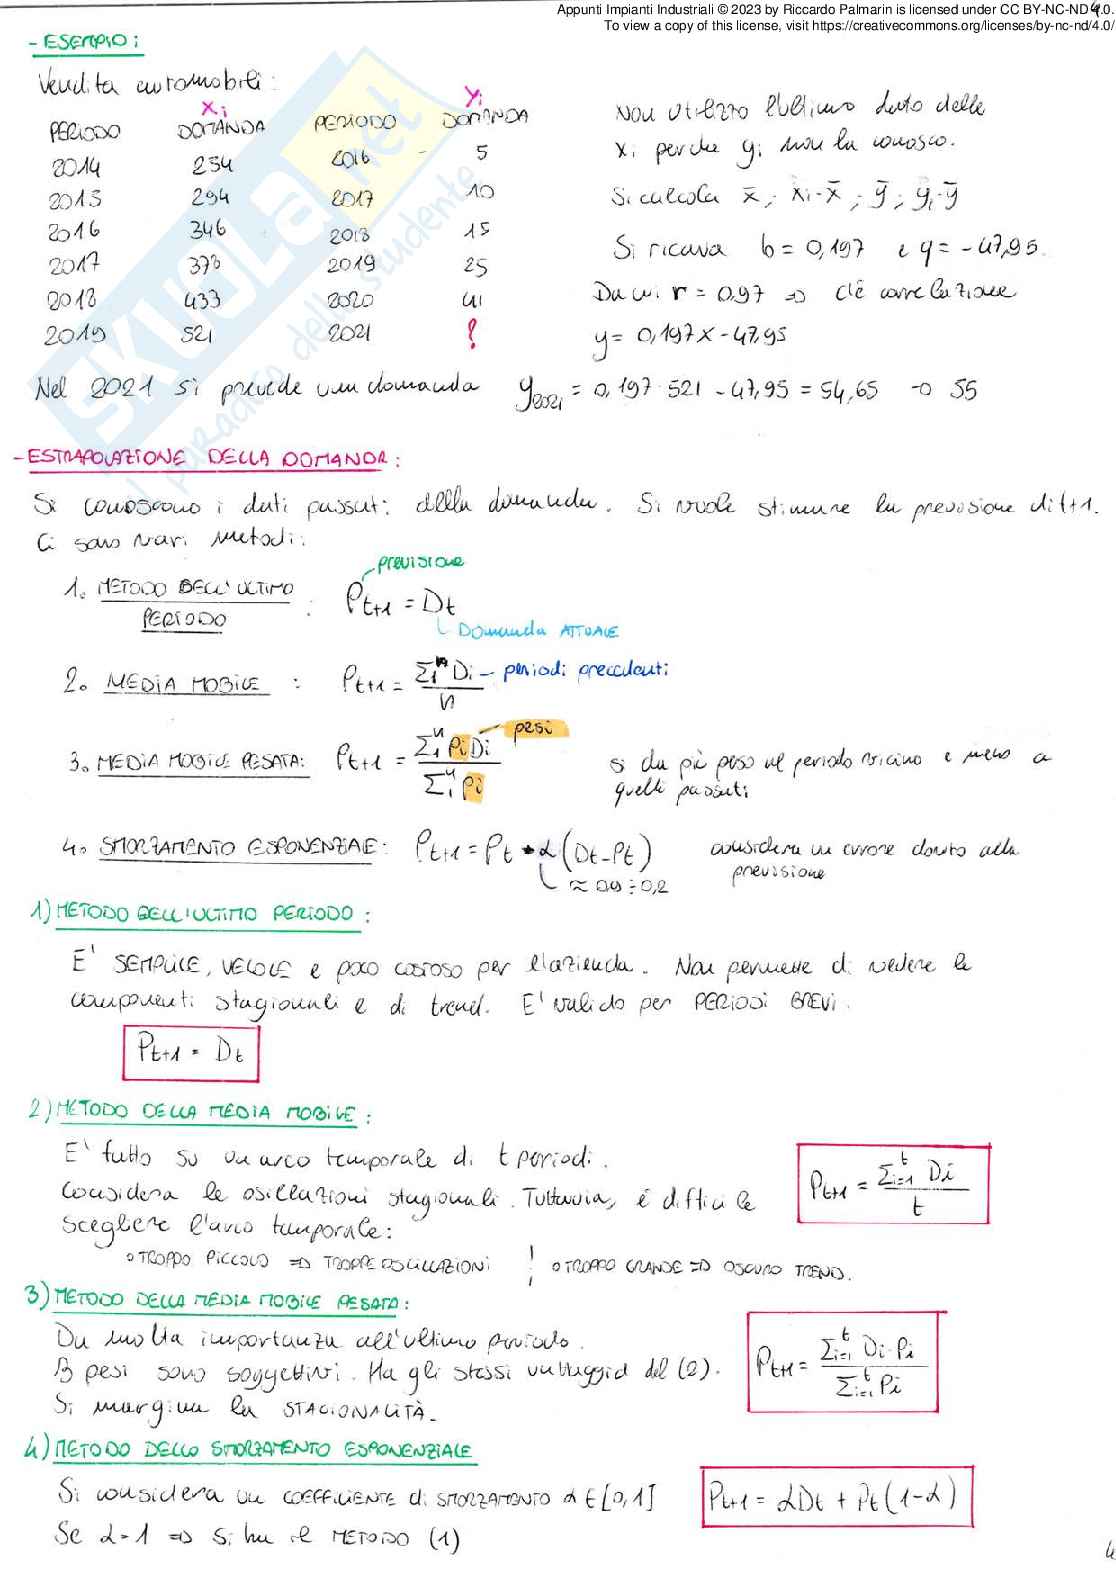 Appunti Impianti Industriali © 2023 by Riccardo Palmarin is licensed under CC BY-NC-ND 4.0.
To view a copy of this license, visit https://creativecommons.org/licenses/by-nc-nd/4.0/
- ESEMPIO:
Vendita automobili:
Xi yi
PERIODO DOMANDA PERIODO DOMANDA
2014 254 2016 5
2015 294 2017 10
2016 346 2018 15
2017 378 2019 25
2018 433 2020 41
2019 521 2021 ?
Non utilizzo l'ultimo dato delle
xi perché yi non la conosco.
Si calcola x̄, xi-x̄; ȳ; yi-ȳ
Si ricava b = 0,197 e q = -47,95.
Da cui r = 0,97 => c'è correlazione
y = 0,197x - 47,95
Nel 2021 si prevede una domanda y2021 = 0,197·521 - 47,95 = 54,65 → 55
- ESTRAPOLAZIONE DELLA DOMANDA:
Si conoscono i dati passati della domanda. Si vuole stimare la previsione di t+1.
Ci sono vari metodi:
previsione
1. METODO DELL'ULTIMO PERIODO: Pt+1 = Dt
Domanda ATTUALE
2. MEDIA MOBILE: Pt+1 = Σ1^n Di / n - periodi precedenti
3. MEDIA MOBILE PESATA: Pt+1 = Σ1^n Pi Di / Σ1^n Pi pesi
si da più peso al periodo vicino e meno a
quelli passati
4. SMORZAMENTO ESPONENZIALE: Pt+1 = Pt + α(Dt-Pt) considera un errore dovuto alla
previsione
1) METODO DELL'ULTIMO PERIODO:
E' SEMPLICE, VELOCE e poco costoso per l'azienda. Non permette di vedere le
componenti stagionali e di trend. E' valido per PERIODI BREVI.
Pt+1 = Dt
2) METODO DELLA MEDIA MOBILE:
E' fatto su un arco temporale di t periodi.
Considera le osillazioni stagionali. Tuttavia, é difficile
scegliere l'arco temporale:
Pt+1 = Σi=1^t Di / t
◦ TROPPO PICCOLO => TROPPE OSCILLAZIONI ! ◦ TROPPO GRANDE => OSCURO TREND.
3) METODO DELLA MEDIA MOBILE PESATA:
Da molta importanza all'ultimo periodo.
I pesi sono soggettivi. Ha gli stessi vantaggi del (2).
Si margina la STAGIONALITÀ.
Pt+1 = Σi=1^t Di·Pi / Σi=1^t Pi
4) METODO DELLO SMORZAMENTO ESPONENZIALE
Si considera un COEFFICIENTE di SMORZAMENTO α ∈ [0,1]
Se α = 1 => si ha il METODO (1)
Pt+1 = αDt + Pt(1-α)
4
SKUOLA.net
il paradiso dello studente